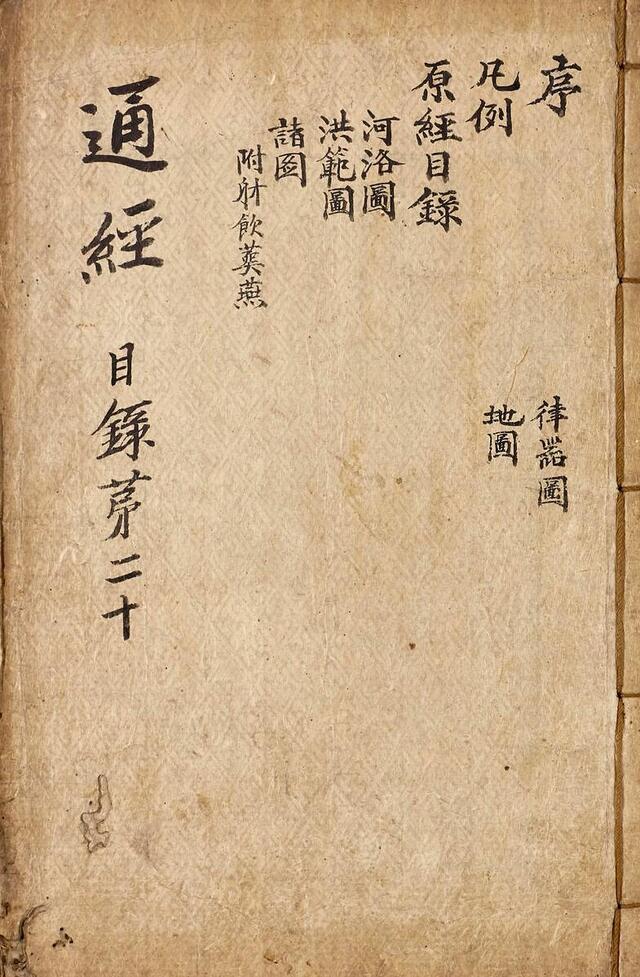 序
凡例
原經目錄
河洛圖
洪範圖
諸圖
附射飮葬燕
律器圖
地圖
通經 目錄苐二十